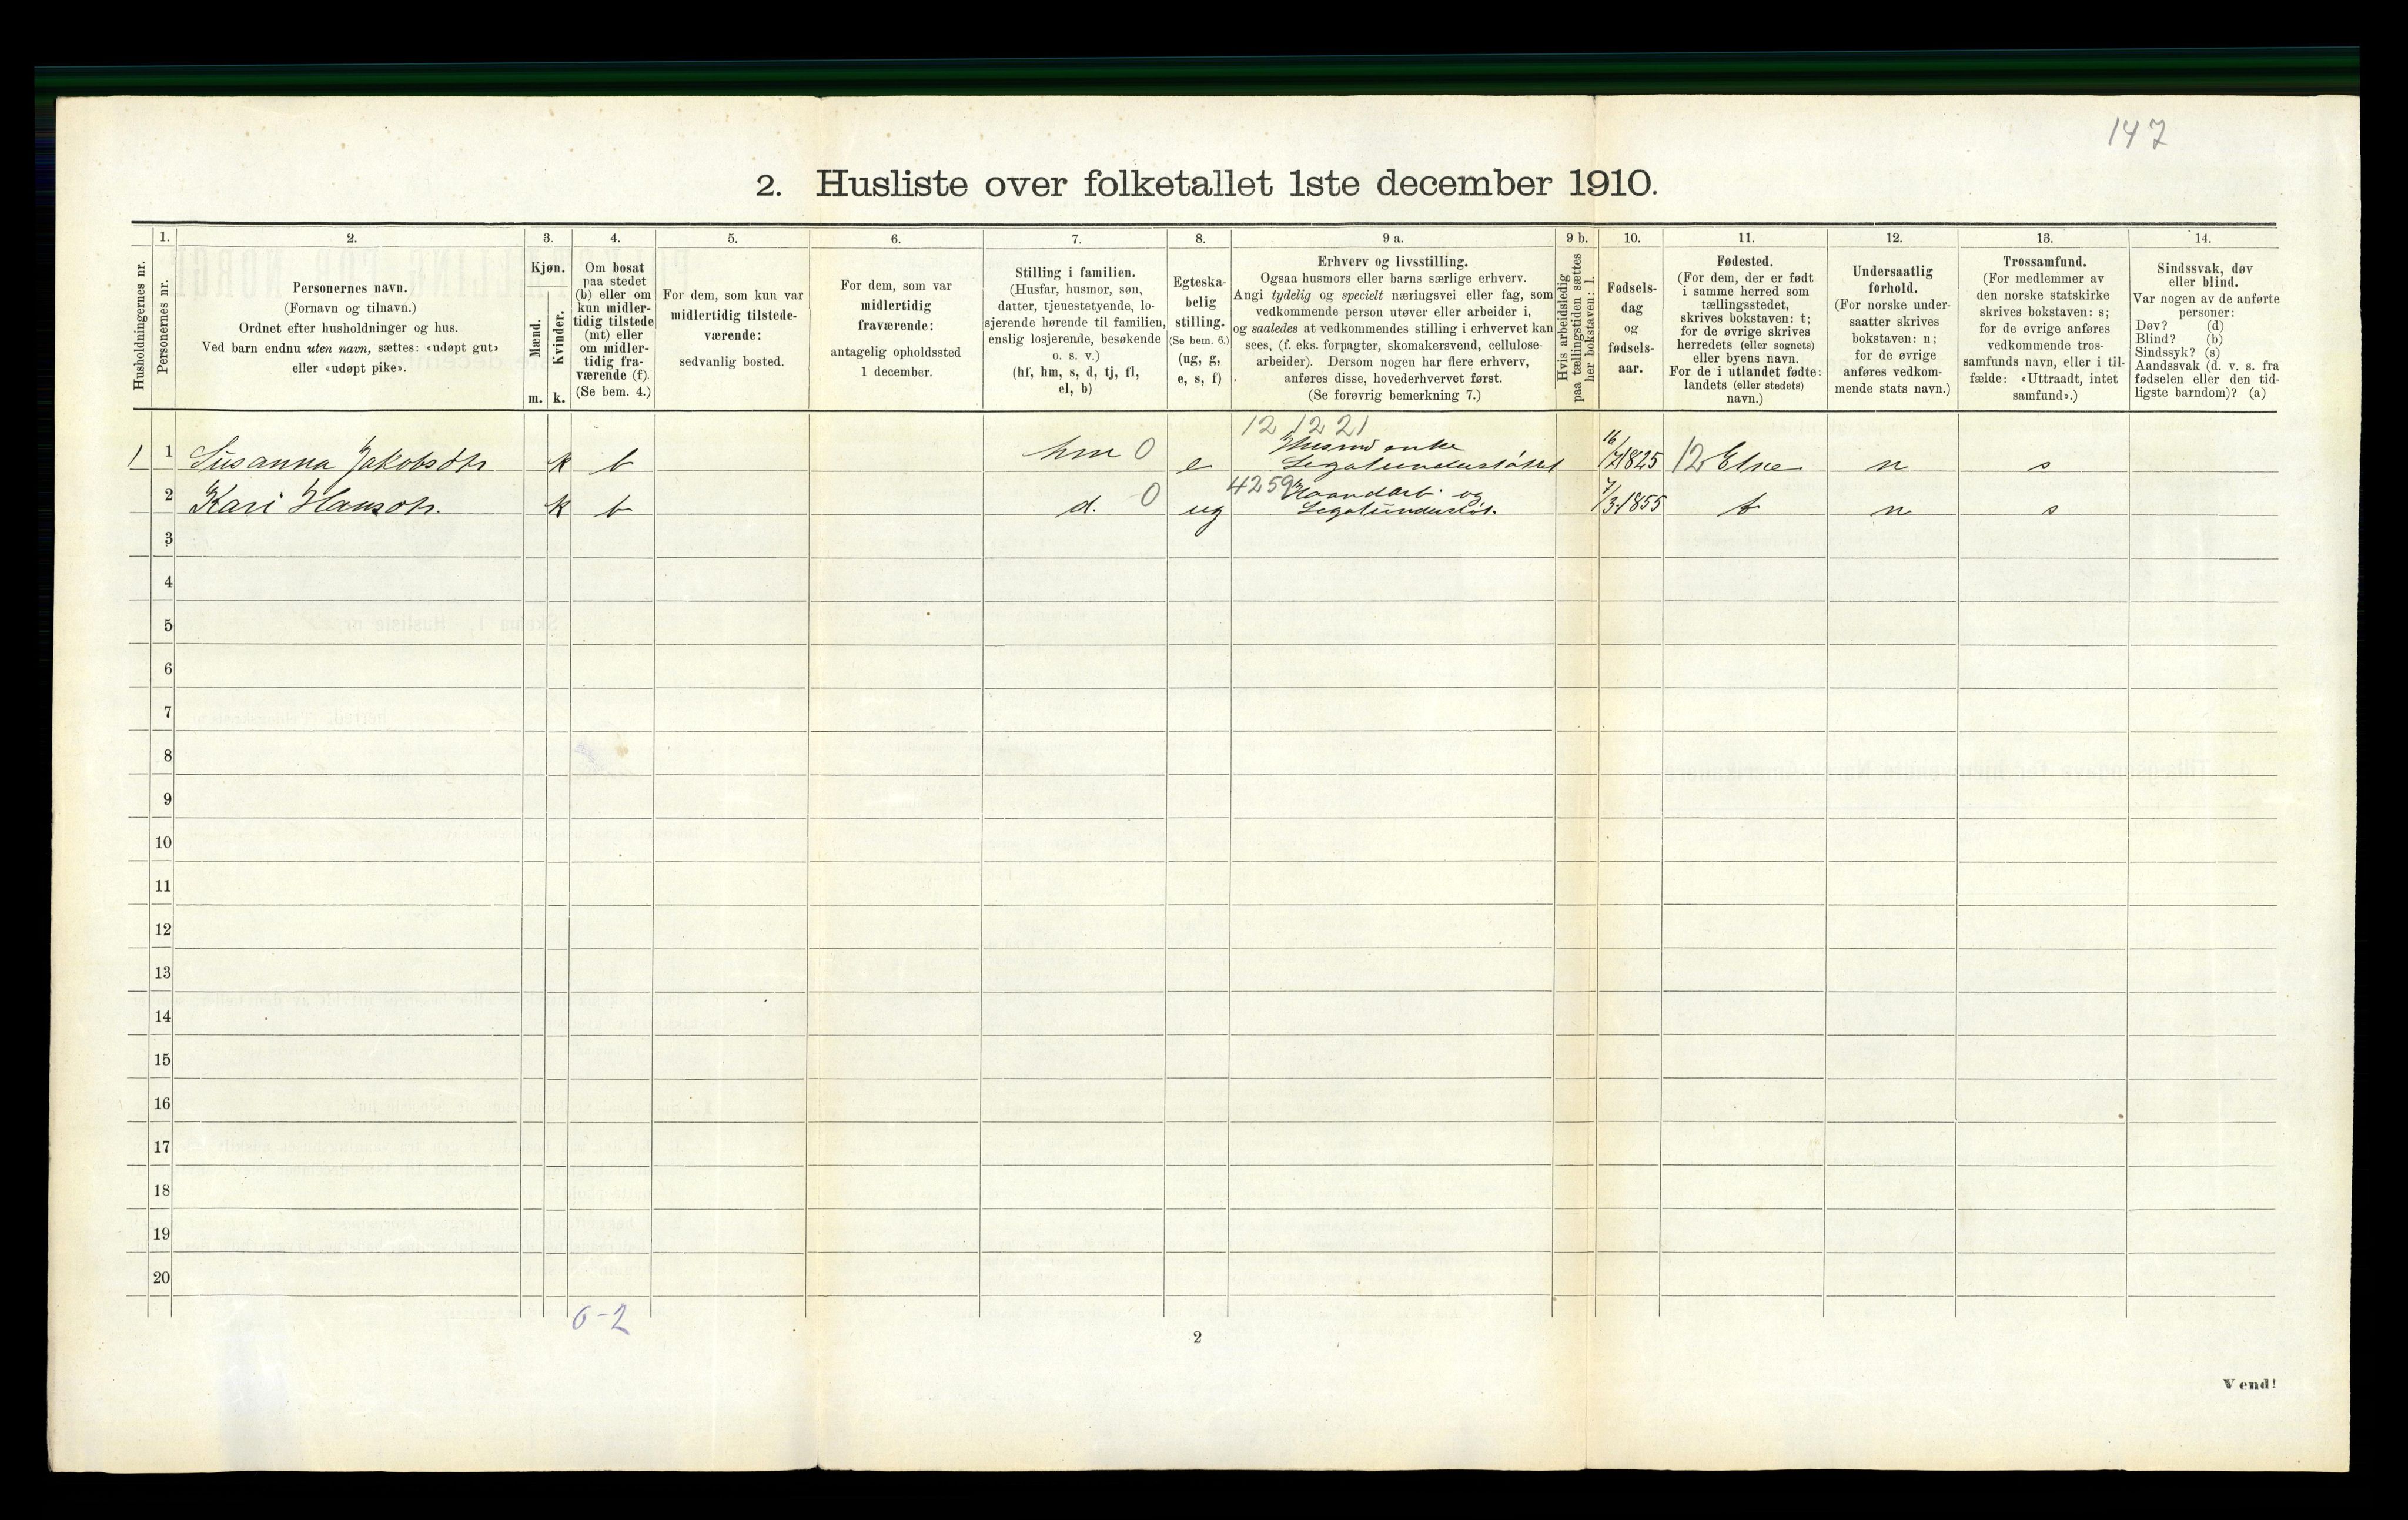 147
2. Husliste over folketallet 1ste december 1910.
Husholdningernes nr.
1.
Personernes nr.
2.
Personernes navn.
(Fornavn og tilnavn.)
Ordnet efter husholdninger og hus.
Ved barn endnu uten navn, sættes: «udøpt gut»
eller «udøpt pike».
3.
Kjøn.
Mænd.
Kvinder.
m. k.
4.
Om bosat
paa stedet
(b) eller om
kun midler-
tidig tilstede
(mt) eller
om midler-
tidig fra-
værende (f).
(Se bem. 4.)
5.
For dem, som kun var
midlertidig tilstede-
værende:
sedvanlig bosted.
6.
For dem, som var
midlertidig
fraværende:
antagelig opholdssted
1 december.
7.
Stilling i familien.
(Husfar, husmor, søn,
datter, tjenestetyende, lo-
sjerende hørende til familien,
enslig losjerende, besøkende
o. s. v.)
(hf, hm, s, d, tj, fl,
el, b)
8.
Egteska-
belig
stilling.
(Se bem. 6.)
(ug, g,
e, s, f)
9 a.
Erhverv og livsstilling.
Ogsaa husmors eller barns særlige erhverv.
Angi tydelig og specielt næringsvei eller fag, som
vedkommende person utøver eller arbeider i,
og saaledes at vedkommendes stilling i erhvervet kan
sees, (f. eks. forpagter, skomakersvend, cellulose-
arbeider). Dersom nogen har flere erhverv,
anføres disse, hovederhvervet først.
(Se forøvrig bemerkning 7.)
9 b.
Hvis arbeidsledig
paa tællingstiden sættes
her bokstaven: l.
10.
Fødsels-
dag
og
fødsels-
aar.
11.
Fødested.
(For dem, der er født
i samme herred som
tællingsstedet,
skrives bokstaven: t;
for de øvrige skrives
herredets (eller sognets)
eller byens navn.
For de i utlandet fødte:
landets (eller stedets)
navn.)
12.
Undersaatlig
forhold.
(For norske under-
saatter skrives
bokstaven: n;
for de øvrige
anføres vedkom-
mende stats navn.)
13.
Trossamfund.
(For medlemmer av
den norske statskirke
skrives bokstaven: s;
for de øvrige anføres
vedkommende tros-
samfunds navn, eller i til-
fælde: «Uttraadt, intet
samfund».)
14.
Sindssvak, døv
eller blind.
Var nogen av de anførte
personer:
Døv? (d)
Blind? (b)
Sindssyk? (s)
Aandssvak (d. v. s. fra
fødselen eller den tid-
ligste barndom)? (a)
12 1221
1 1 Susanna Jakobsdtr k b hm 0 e Husmd enke Legatunderstøttet 16/7 1825 12 Elne n s
2 Kari Hansdtr. k b d. 0 ug 4259 Haandarb. og Legatunderstøt. 7/3 1855 t n s
3
4
5
6
7
8
9
10
11
12
13
14
15
16
17
18
19
20
0-2
2
Vend!